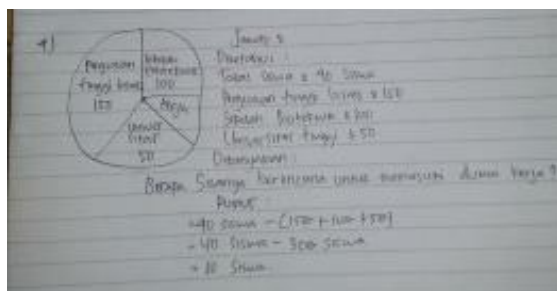 4)
Perguruan
tinggi bisnis
150
Sekolah
100
Kerja
Univer
sitas
50
Jawab :
Diketahui :
Total siswa = 40 siswa
Perguruan tinggi bisnis = 150
Sekolah = 100
Universitas = 50
Ditanyakan :
Berapa Siswanya berencana untuk memasuki dunia kerja ?
= 40 siswa - (150 + 100 + 50)
= 40 siswa - 300 siswa
= 10 Siswa